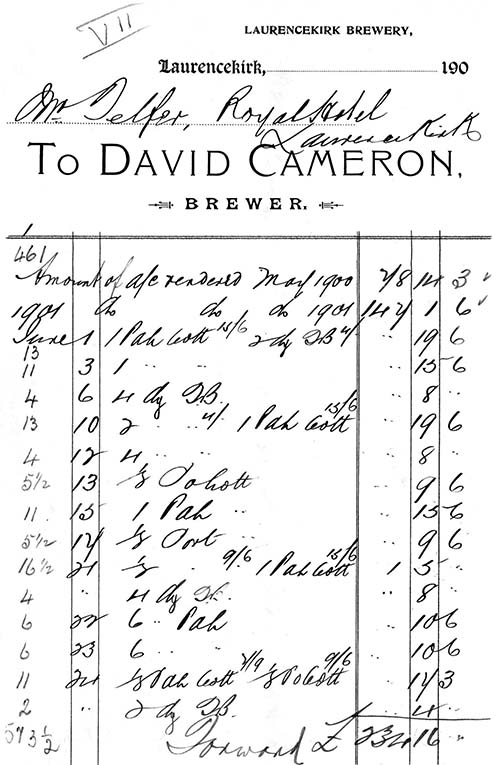 VII
LAURENCEKIRK BREWERY,
Laurencekirk, 190
Mr. Telfer, Royal Hotel
Laurencekirk
To DAVID CAMERON,
BREWER.
1
461
Amount of a/c rendered May 1900 78 14 3
1901 do do do 1901 147 1 6
June 1 1 Pah Cott 15/6 2 dz TB 4/ " 19 6
13
11 3 1 " " " 15 6
4 6 4 dz TB. " 8 "
13 10 2 " " 4/ 1 Pah Cott 15/6 " 19 6
4 12 4 " " " 8 "
5½ 13 ½ Po Cott " 9 6
11 15 1 Pah " " 15 6
5½ 17 ½ Port " " 9 6
16½ 21 ½ " 9/6 1 Pah Cott 15/6 1 5 "
4 " 4 dz TB. " 8 "
6 22 6 " Pah " 10 6
6 23 6 " " " 10 6
11 24 ½ Pah Cott 7/9 ½ Po Cott 9/6 " 17 3
2 " 2 dz TB. " 4 "
573½ Forward £ 234 16 "